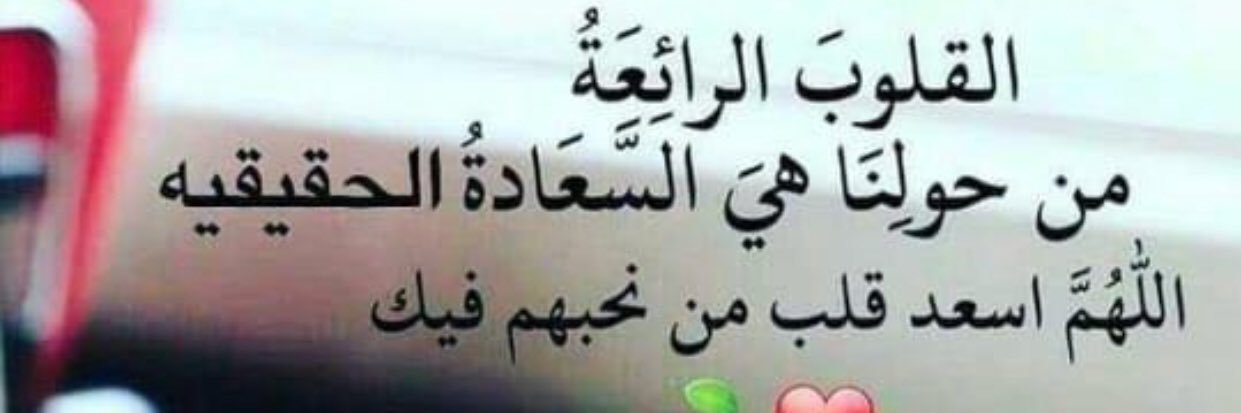 القلوبَ الرائِعَةُ
من حولِنَا هيَ السَّعَادةُ الحقيقيه
اللّهُمَّ اسعد قلب من نحبهم فيك